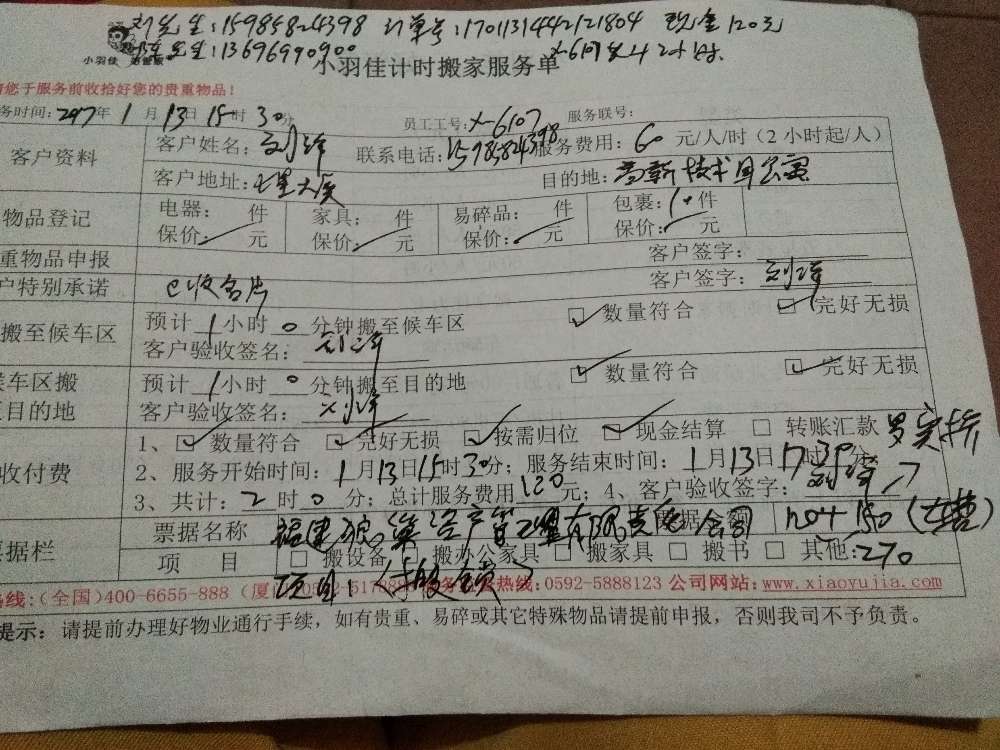 刘先生:15985824398 订单号:17011314442121804 现金120元
陈先生:13696990900 x-6107 2小时
小羽佳 小羽佳计时搬家服务单
请您于服务前收拾好您的贵重物品!
务时间:2017年1月13日15时30分 员工工号:x-6107 服务联号:
客户资料 客户姓名: 联系电话:15985824398 服务费用:60元/人/时(2小时起/人)
客户地址:七星大厦 目的地:高新技术
物品登记 电器: 件 家具: 件 易碎品: 件 包裹: 件
保价: 元 保价: 元 保价: 元 保价: 元
重物品申报 客户签字:
户特别承诺 已收名片 客户签字:
搬至候车区 预计1小时0分钟搬至候车区 数量符合 完好无损
客户验收签名:
候车区搬至目的地 预计1小时0分钟搬至目的地 数量符合 完好无损
客户验收签名:
收付费 1、数量符合 完好无损 按需归位 现金结算 转账汇款
2、服务开始时间:1月13日15时30分;服务结束时间:1月13日17时30分
3、共计:2时0分;总计服务费用120元;4、客户验收签字:
票据栏 票据名称 福建 资产管理有限责任公司 票据金额 120+150(车费)
项 目 搬设备 搬办公家具 搬家具 搬书 其他:270
项目
热线:(全国)400-6655-888 (厦 热线:0592-5888123 公司网站:www.xiaoyujia.com
提示:请提前办理好物业通行手续,如有贵重、易碎或其它特殊物品请提前申报,否则我司不予负责。